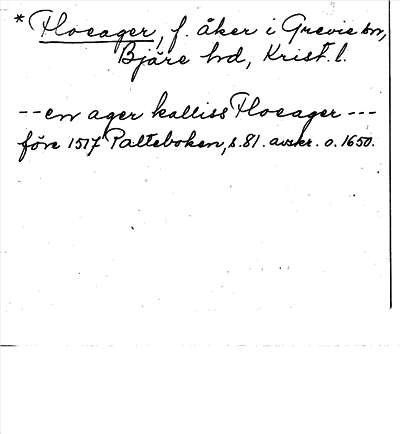 * Ploeager, f. åker i Grevie sn,
Bjäre hd, Krist. l.
-- en ager kalliss Ploeager ---
före 1517 Palteboken, s. 81. avskr. o. 1650.